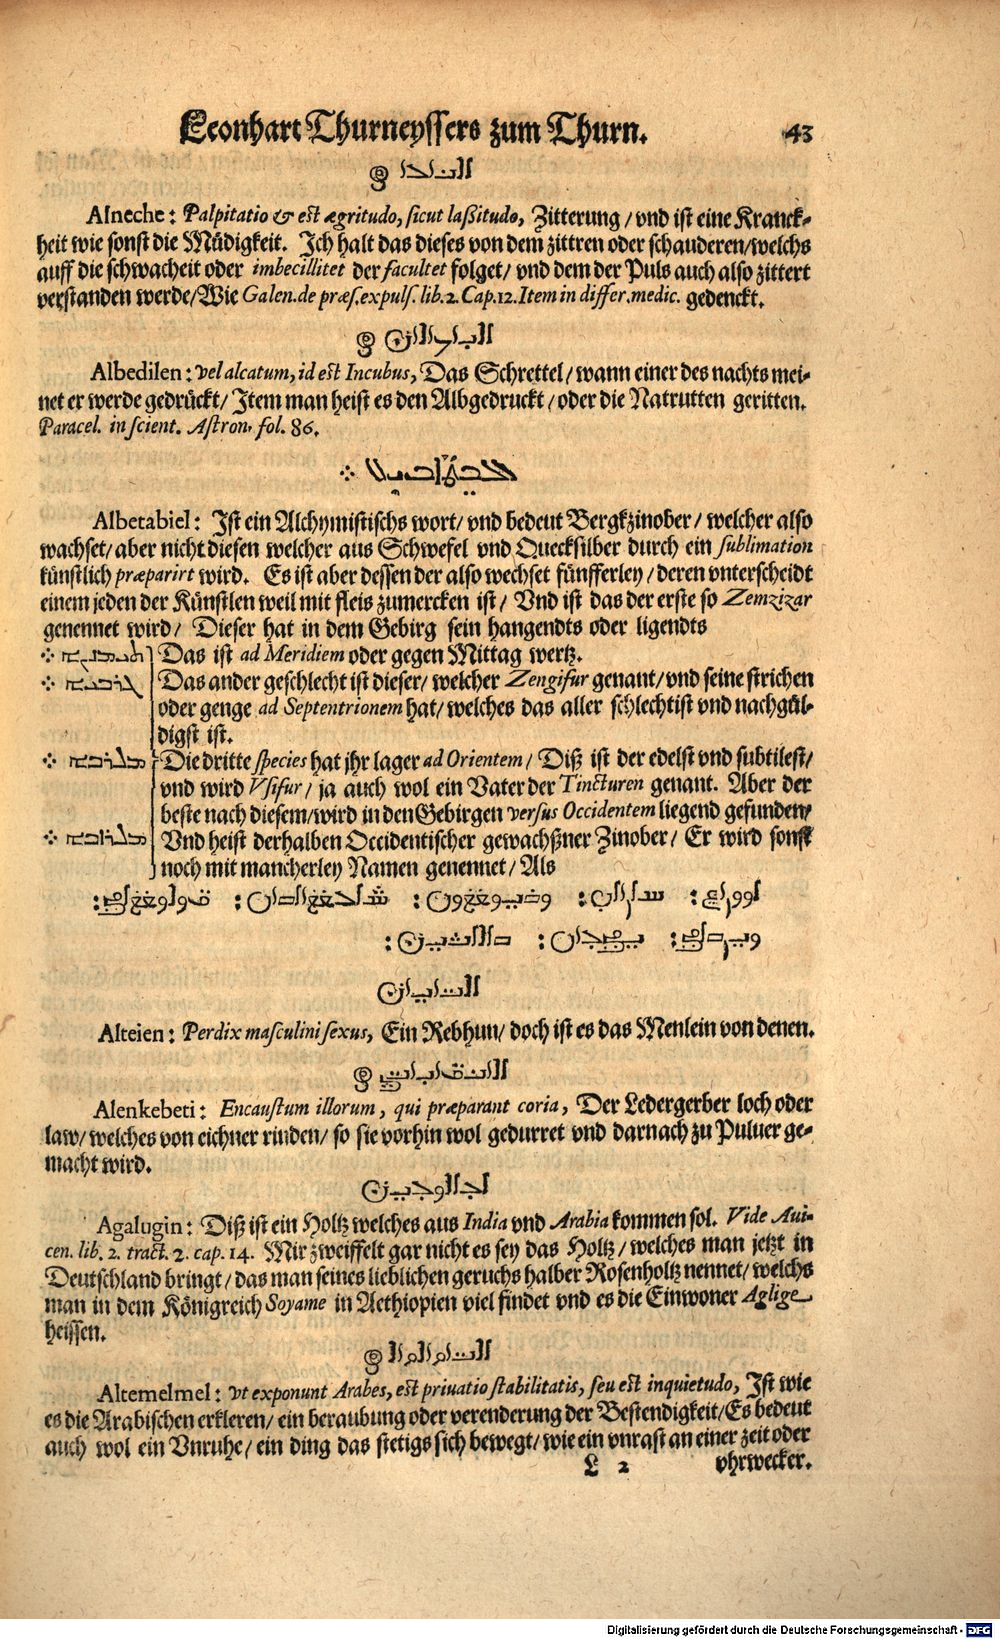 Leonhart Thurneyssers zum Thurn. 43
Alneche: Palpitatio & est ægritudo, sicut laßitudo, Zitterung / vnd ist eine Kranck-
heit wie sonst die Müdigkeit. Ich halt das dieses von dem zittren oder schauderen / welchs
auff die schwacheit oder imbecillitet der facultet folget / vnd dem der Puls auch also zittert
verstanden werde / Wie Galen. de præs. expuls. lib. 2. Cap. 12. Item in differ. medic. gedenckt.
Albedilen: vel alcatum, id est Incubus, Das Schrettel / wann einer des nachts mei-
net er werde gedrückt / Item man heist es den Albgedruckt / oder die Natrutten geritten.
Paracel. in scient. Astron. fol. 86.
Albetabiel: Ist ein Alchymistischs wort / vnd bedeut Bergkzinober / welcher also
wachset / aber nicht diesen welcher aus Schwefel vnd Quecksilber durch ein sublimation
künstlich præparirt wird. Es ist aber dessen der also wechset fünfferley / deren vnterscheidt
einem jeden der Künstlen weil mit fleis zumercken ist / Vnd ist das der erste so Zemzizar
genennet wird / Dieser hat in dem Gebirg sein hangendts oder ligendts
Das ist ad Meridiem oder gegen Mittag wertz.
Das ander geschlecht ist dieser / welcher Zengifur genant / vnd seine strichen
oder genge ad Septentrionem hat / welches das aller schlechtist vnd nachgül-
digst ist.
Die dritte species hat jhr lager ad Orientem / Diß ist der edelst vnd subtilest /
vnd wird Vsifur / ja auch wol ein Vater der Tincturen genant. Aber der
beste nach diesem / wird in den Gebirgen versus Occidentem liegend gefunden /
Vnd heist derhalben Occidentischer gewachßner Zinober / Er wird sonst
noch mit mancherley Namen genennet / Als
Alteien: Perdix masculini sexus, Ein Rebhun / doch ist es das Menlein von denen.
Alenkebeti: Encaustum illorum, qui præparant coria, Der Ledergerber loch oder
law / welches von eichner rinden / so sie vorhin wol gedurret vnd darnach zu Puluer ge-
macht wird.
Agalugin: Diß ist ein Holtz welches aus India vnd Arabia kommen sol. Vide Aui-
cen. lib. 2. tract. 2. cap. 14. Mir zweiffelt gar nicht es sey das Holtz / welches man jetzt in
Deutschland bringt / das man seines lieblichen geruchs halber Rosenholtz nennet / welchs
man in dem Königreich Soyame in Aethiopien viel findet vnd es die Einwoner Aglige
heissen.
Altemelmel: vt exponunt Arabes, est priuatio stabilitatis, seu est inquietudo, Ist wie
es die Arabischen erkleren / ein beraubung oder verenderung der Bestendigkeit / Es bedeut
auch wol ein Vnruhe / ein ding das stetigs sich bewegt / wie ein vnrast an einer zeit oder
L 2 vhrwecker.
Digitalisierung gefördert durch die Deutsche Forschungsgemeinschaft - DFG